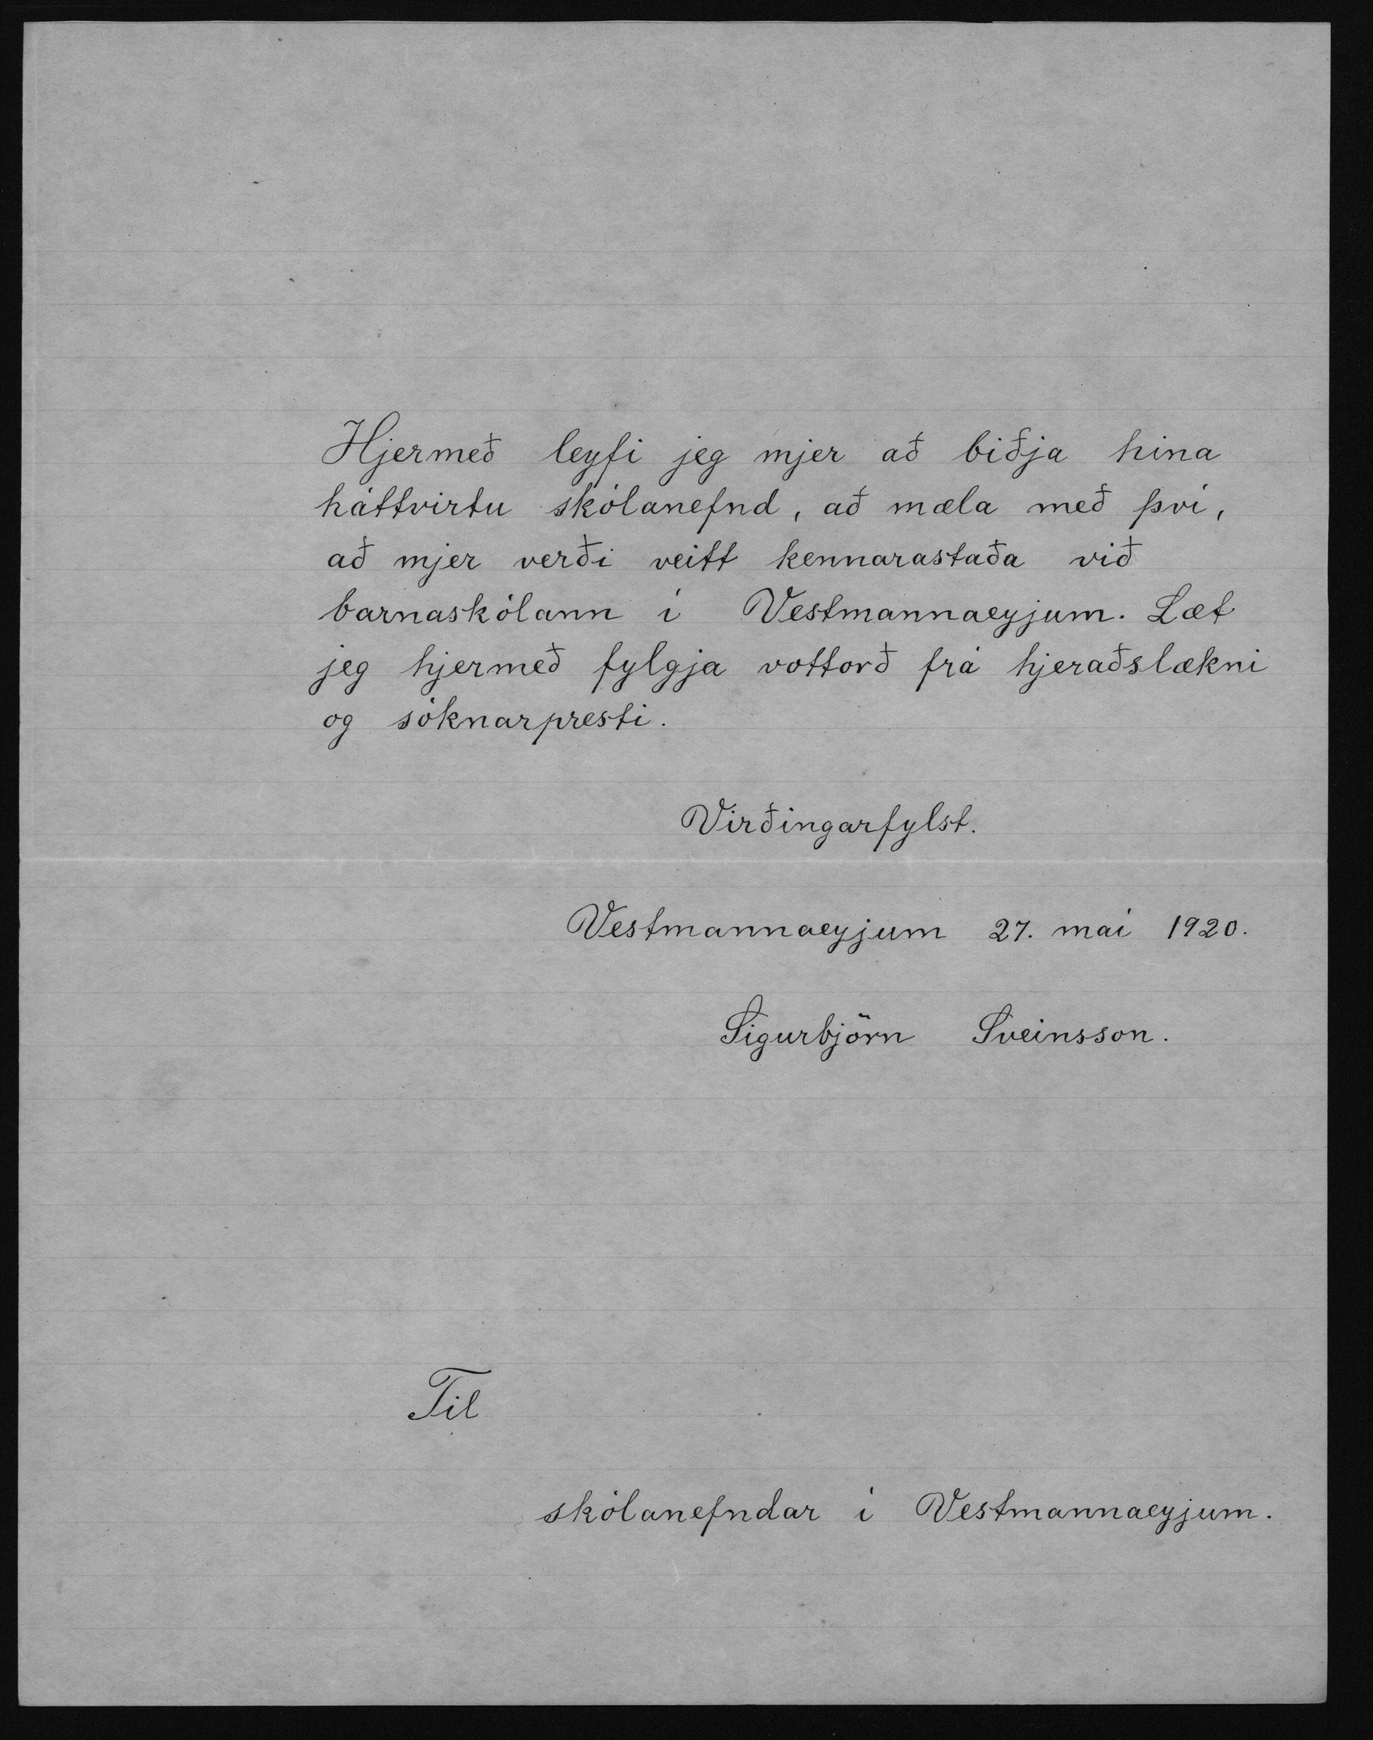 Hjermeð leyfi jeg mjer að biðja hina
háttvirtu skólanefnd, að mæla með því,
að mjer verði veitt kennarastaða við
barnaskólann í Vestmannaeyjum. Læt
jeg hjermeð fylgja vottorð frá hjeraðslækni
og sóknarpresti.
Virðingarfylst.
Vestmannaeyjum 27. maí 1920.
Sigurbjörn Sveinsson.
Til
skólanefndar í Vestmannaeyjum.